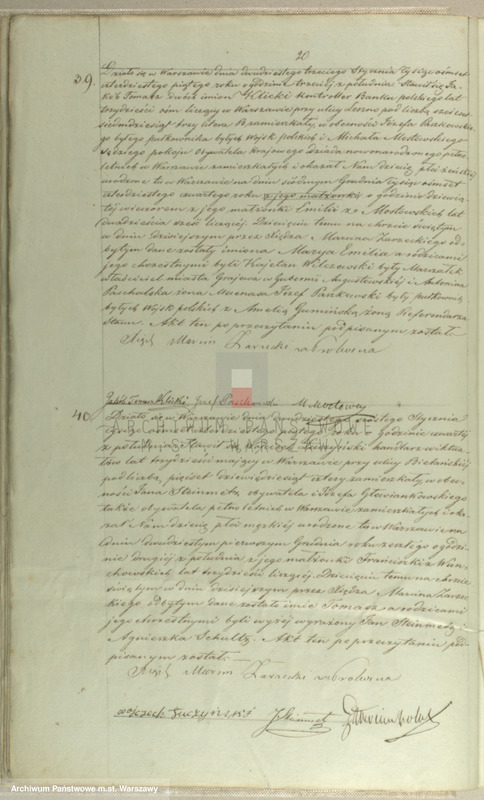 20
39. Działo się w Warszawie dnia dwudziestego trzeciego Stycznia tysiąc ośmset
czterdziestego piątego roku o godzinie trzeciej z południa Stawił się Ja-
kób Tomasz dwóch imion Klicki Kontroller Banku polskiego lat
trzydzieści ośm liczący w Warszawie przy ulicy Leszno pod liczbą sześćset
siedmdziesiąt trzy litera B zamieszkały, w obecności Józefa Paszkowskie-
go byłego pułkownika byłych Wojsk polskich i Michała Mostowskiego
sędziego pokoju Obywatela krajowego dziada nowonarodzonego peł-
letnich w Warszawie zamieszkałych i okazał Nam dziecię płci żeńskiej
urodzone tu w Warszawie na dniu siódmym Grudnia tysiąc ośmset
czterdziestego czwartego roku z jego małżonki o godzinie dziewią-
tej wieczorem z jego małżonki Emilii z Mostowskich lat
dwadzieścia sześć liczącej. Dziecięciu temu na chrzcie świętym
w dniu dzisiejszym przez Xiędza Marcina Zarzeckiego od-
bytym dane zostały imiona Marya Emilia a rodzicami
jego chrzestnymi byli Kajetan Wilczewski były Marszałek
właściciel miasta Grajewa w Gubernii Augustowskiej i Antonina
Paschalska żona Mecenasa Józef Paszkowski były pułkownik
byłych Wojsk polskich z Amelią Gumińską żoną Referendarza
Stanu. Akt ten po przeczytaniu podpisanym został.
Xiądz Marcin Zarzecki
Jakób Tomasz Klicki Józef Paszkowski M Mostowski
ARCHIWUM PAŃSTWOWE
WARSZAWA
40. Działo się w Warszawie dnia dwudziestego trzeciego Stycznia
tysiąc ośmset czterdziestego piątego roku o godzinie czwartej
z południa Stawił się Wojciech Tuczyński handlarz wiktua-
łów lat trzydzieści mający w Warszawie przy ulicy Bielańskiej
pod liczbą pięćset dziewięćdziesiąt cztery zamieszkały w obec-
ności Jana Steinmetz, obywatela i Józefa Głowiankowskiego
także Obywatela pełnoletnich w Warszawie zamieszkałych i oka-
zał Nam dziecię płci męskiej urodzone tu w Warszawie na
dniu dwudziestym pierwszym Grudnia roku zeszłego o godzi-
nie drugiej z południa z jego małżonki Franciszki z Wun-
chowskich lat trzydzieści liczącej. Dziecięciu temu na chrzcie
świętym w dniu dzisiejszym przez Xiędza Marcina Zarzec-
kiego odbytym dane zostało imie Tomasz a rodzicami
jego chrzestnymi byli wyżej wyrażony Jan Steinmetz i
Agnieszka Schultz. Akt ten po przeczytaniu pod-
pisanym został.
Xiądz Marcin Zarzecki
Wojciech Tuczyński J Steinmetz
Archiwum Państwowe m.st. Warszawy